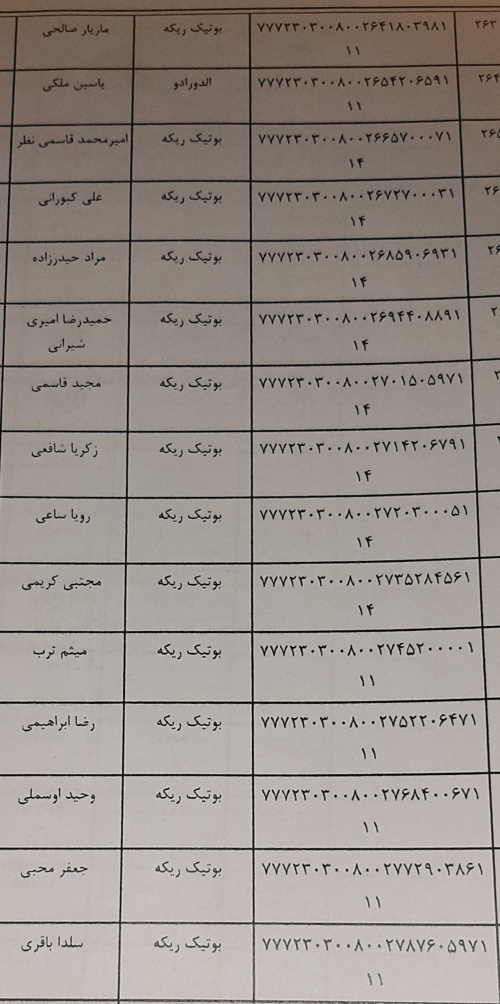 ۲۶۳ ۷۷۷۲۳۰۳۰۰۸۰۰۲۶۴۱۸۰۳۹۸۱ بوتیک ریکه مازیار صالحی
۱۱
۲۶۴ ۷۷۷۲۳۰۳۰۰۸۰۰۲۶۵۴۲۰۶۵۹۱ الدورادو یاسین ملکی
۱۱
۲۶۵ ۷۷۷۲۳۰۳۰۰۸۰۰۲۶۶۵۷۰۰۰۷۱ بوتیک ریکه امیرمحمد قاسمی نظر
۱۴
۷۷۷۲۳۰۳۰۰۸۰۰۲۶۷۲۷۰۰۰۳۱ بوتیک ریکه علی کبورانی
۱۴
۷۷۷۲۳۰۳۰۰۸۰۰۲۶۸۵۹۰۶۹۳۱ بوتیک ریکه مراد حیدرزاده
۱۴
۷۷۷۲۳۰۳۰۰۸۰۰۲۶۹۴۴۰۸۸۹۱ بوتیک ریکه حمیدرضا امیری
۱۴ شیرانی
۷۷۷۲۳۰۳۰۰۸۰۰۲۷۰۱۵۰۵۹۷۱ بوتیک ریکه مجید قاسمی
۱۴
۷۷۷۲۳۰۳۰۰۸۰۰۲۷۱۴۲۰۶۷۹۱ بوتیک ریکه زکریا شافعی
۱۴
۷۷۷۲۳۰۳۰۰۸۰۰۲۷۲۰۳۰۰۰۵۱ بوتیک ریکه رویا ساعی
۱۴
۷۷۷۲۳۰۳۰۰۸۰۰۲۷۳۵۲۸۴۵۶۱ بوتیک ریکه مجتبی کریمی
۱۴
۷۷۷۲۳۰۳۰۰۸۰۰۲۷۴۵۲۰۰۰۰۱ بوتیک ریکه میثم ترب
۱۱
۷۷۷۲۳۰۳۰۰۸۰۰۲۷۵۲۲۰۶۴۷۱ بوتیک ریکه رضا ابراهیمی
۱۱
۷۷۷۲۳۰۳۰۰۸۰۰۲۷۶۸۴۰۰۶۷۱ بوتیک ریکه وحید اوسملی
۱۱
۷۷۷۲۳۰۳۰۰۸۰۰۲۷۷۲۹۰۳۸۶۱ بوتیک ریکه جعفر محبی
۱۱
۷۷۷۲۳۰۳۰۰۸۰۰۲۷۸۷۶۰۵۹۷۱ بوتیک ریکه سلدا باقری
۱۱